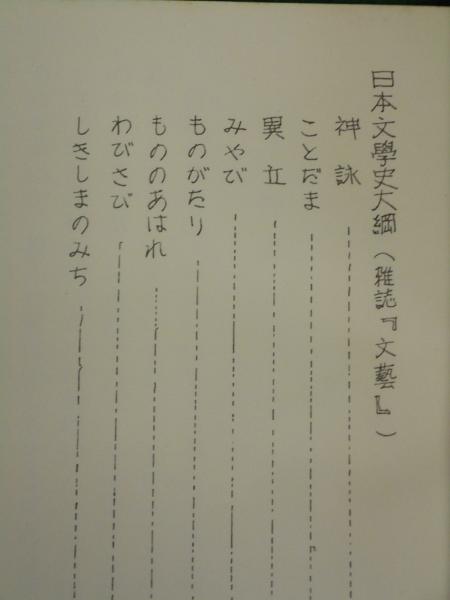 日本文學史大綱（雑誌『文藝』）
神詠
ことだま
異立
みやび
ものがたり
もののあはれ
わびさび
しきしまのみち